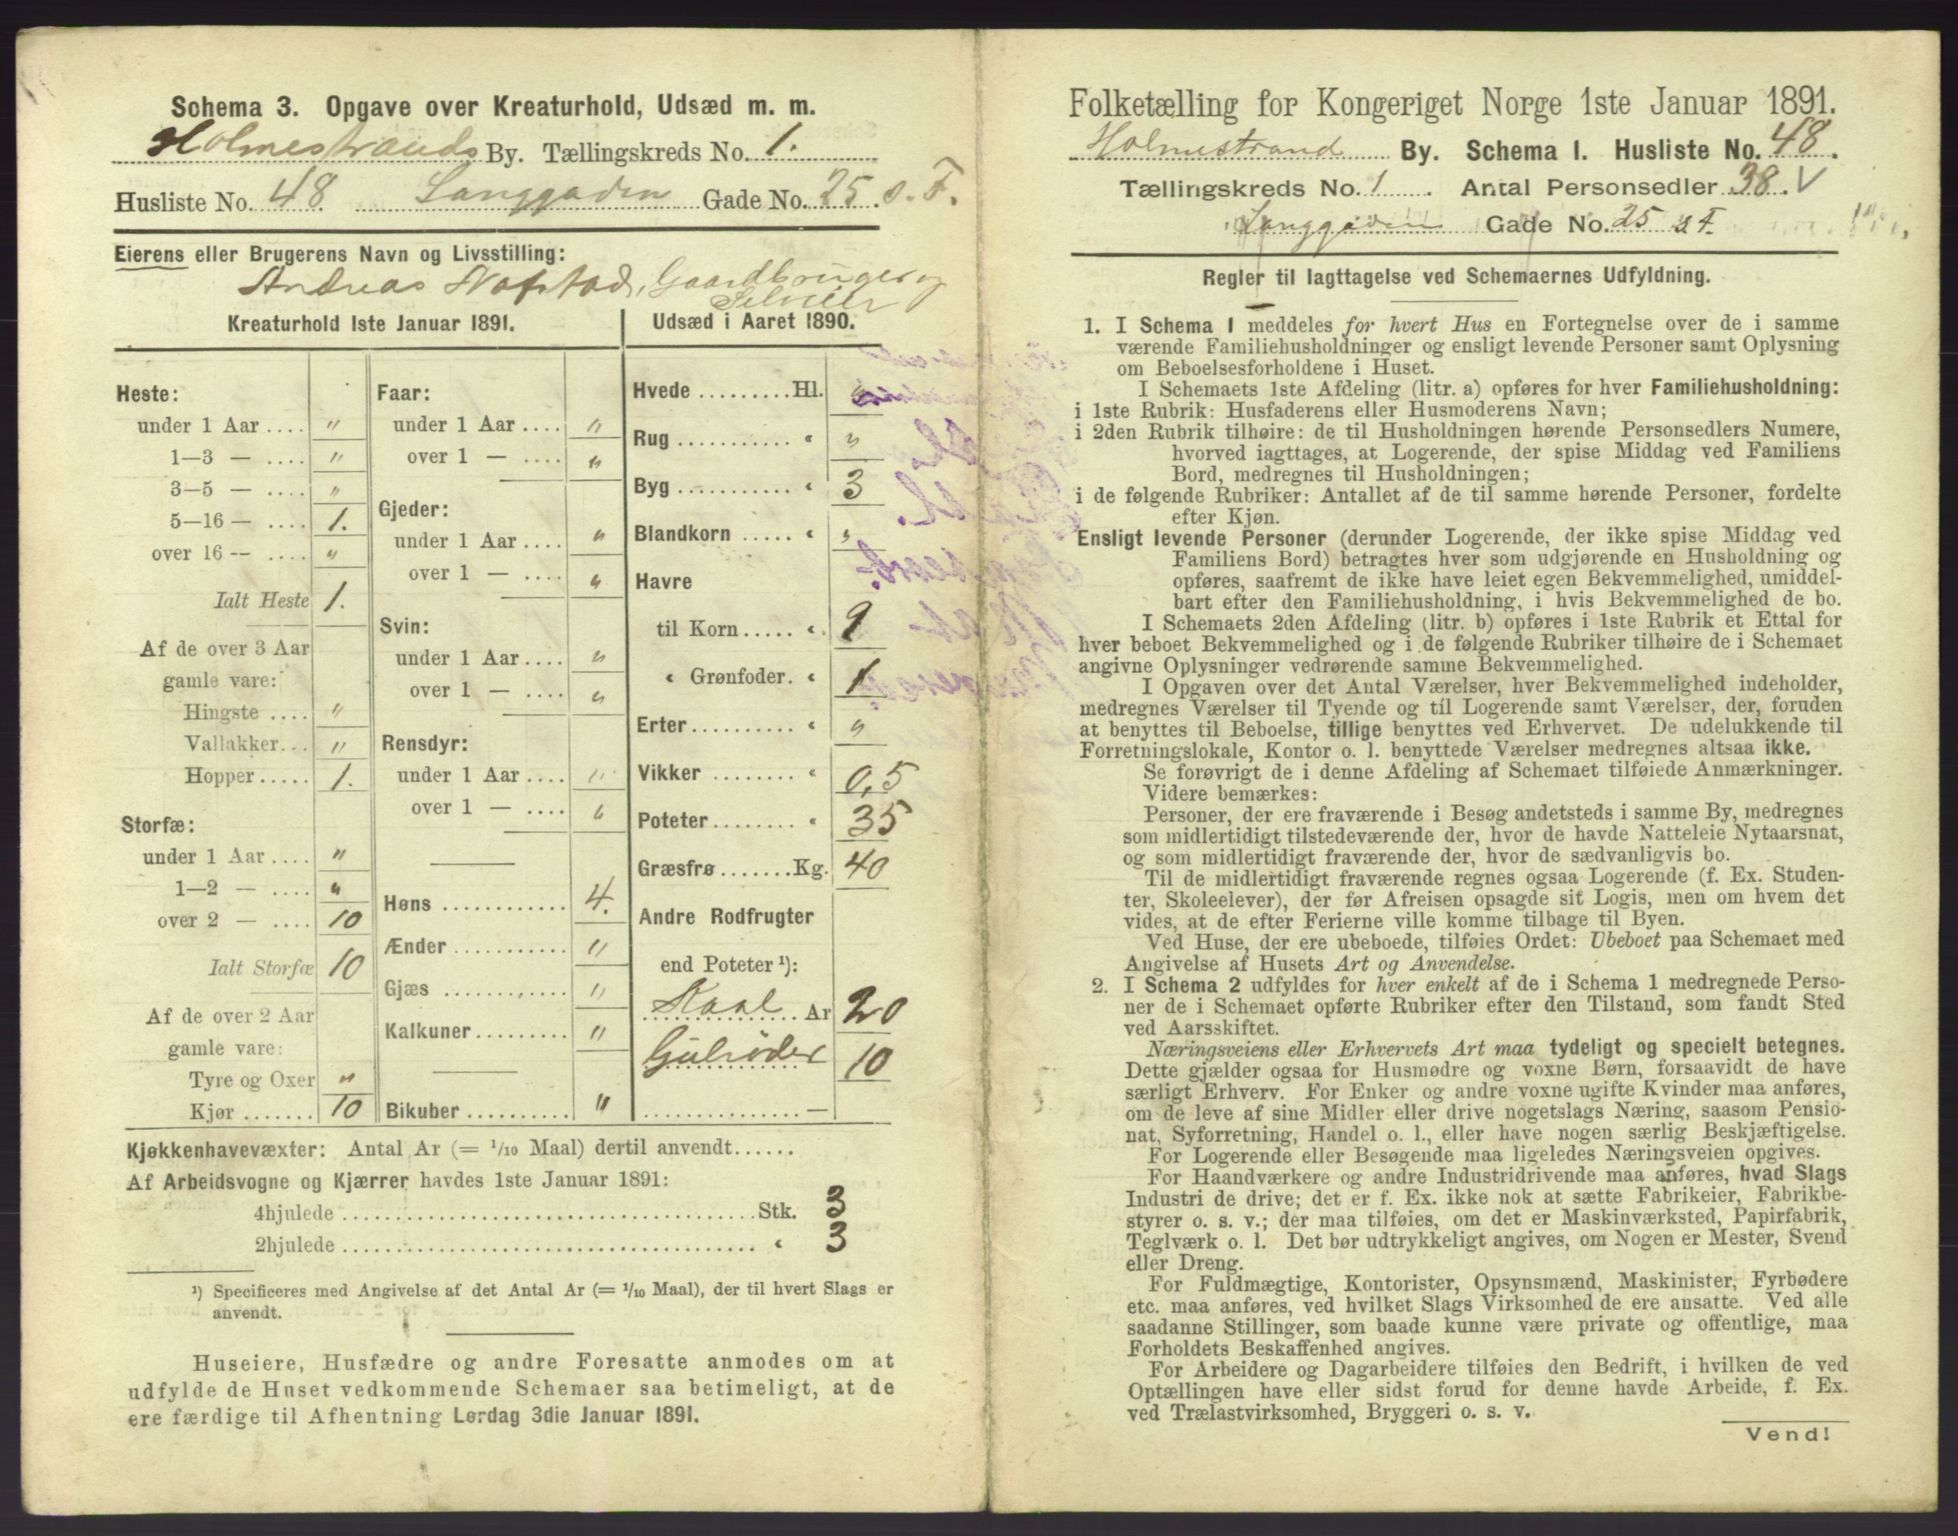 Schema 3. Opgave over Kreaturhold, Udsæd m. m.
Holmestrands By. Tællingskreds No. 1.
Husliste No. 48 Langgaden Gade No. 25 s. F.
Eierens eller Brugerens Navn og Livsstilling:
Andreas Hofstad, Gaardbruger og
Selveier
Kreaturhold 1ste Januar 1891.
Heste:
under 1 Aar .... "
1—3 — .... "
3—5 — .... "
5—16 — .... 1.
over 16 — .... "
Ialt Heste 1.
Af de over 3 Aar
gamle vare:
Hingste .... "
Vallakker... "
Hopper ..... 1.
Storfæ:
under 1 Aar .... "
1—2 — .... "
over 2 — .... 10
Ialt Storfæ 10
Af de over 2 Aar
gamle vare:
Tyre og Oxer "
Kjør ....... 10
Faar:
under 1 Aar .... "
over 1 — .... "
Gjeder:
under 1 Aar .... "
over 1 — .... "
Svin:
under 1 Aar .... "
over 1 — .... "
Rensdyr:
under 1 Aar .... "
over 1 — .... "
Høns ............ 4.
Ænder ........... "
Gjæs ............ "
Kalkuner ......... "
Bikuber .......... "
Udsæd i Aaret 1890.
Hvede ......... Hl. "
Rug ........... « "
Byg ........... « 3
Blandkorn ..... « "
Havre
til Korn ..... « 9
« Grønfoder. « 1
Erter ......... « "
Vikker ........ « 0,5
Poteter ........ « 35
Græsfrø ....... Kg. 40
Andre Rodfrugter
end Poteter ¹):
Kaal Ar 20
Gulrøder 10
—
Kjøkkenhavevæxter: Antal Ar (= 1/10 Maal) dertil anvendt......
Af Arbeidsvogne og Kjærrer havdes 1ste Januar 1891:
4hjulede ........ Stk. 3
2hjulede ........ « 3
¹) Specificeres med Angivelse af det Antal Ar (= 1/10 Maal), der til hvert Slags er
anvendt.
Huseiere, Husfædre og andre Foresatte anmodes om at
udfylde de Huset vedkommende Schemaer saa betimeligt, at de
ere færdige til Afhentning Lørdag 3die Januar 1891.
Folketælling for Kongeriget Norge 1ste Januar 1891.
Holmestrand By. Schema 1. Husliste No. 48.
Tællingskreds No. 1. Antal Personsedler 38. V
Langgaden Gade No. 25 s F.
Regler til Iagttagelse ved Schemaernes Udfyldning.
1. I Schema 1 meddeles for hvert Hus en Fortegnelse over de i samme
værende Familiehusholdninger og ensligt levende Personer samt Oplysning
om Beboelsesforholdene i Huset.
I Schemaets 1ste Afdeling (litr. a) opføres for hver Familiehusholdning:
i 1ste Rubrik: Husfaderens eller Husmoderens Navn;
i 2den Rubrik tilhøire: de til Husholdningen hørende Personsedlers Numere,
hvorved iagttages, at Logerende, der spise Middag ved Familiens
Bord, medregnes til Husholdningen;
i de følgende Rubriker: Antallet af de til samme hørende Personer, fordelte
efter Kjøn.
Ensligt levende Personer (derunder Logerende, der ikke spise Middag ved
Familiens Bord) betragtes hver som udgjørende en Husholdning og
opføres, saafremt de ikke have leiet egen Bekvemmelighed, umiddel-
bart efter den Familiehusholdning, i hvis Bekvemmelighed de bo.
I Schemaets 2den Afdeling (litr. b) opføres i 1ste Rubrik et Ettal for
hver beboet Bekvemmelighed og i de følgende Rubriker tilhøire de i Schemaet
angivne Oplysninger vedrørende samme Bekvemmelighed.
I Opgaven over det Antal Værelser, hver Bekvemmelighed indeholder,
medregnes Værelser til Tyende og til Logerende samt Værelser, der, foruden
at benyttes til Beboelse, tillige benyttes ved Erhvervet. De udelukkende til
Forretningslokale, Kontor o. l. benyttede Værelser medregnes altsaa ikke.
Se forøvrigt de i denne Afdeling af Schemaet tilføiede Anmærkninger.
Videre bemærkes:
Personer, der ere fraværende i Besøg andetsteds i samme By, medregnes
som midlertidigt tilstedeværende der, hvor de havde Natteleie Nytaarsnat,
og som midlertidigt fraværende der, hvor de sædvanligvis bo.
Til de midlertidigt fraværende regnes ogsaa Logerende (f. Ex. Studen-
ter, Skoleelever), der før Afreisen opsagde sit Logis, men om hvem det
vides, at de efter Ferierne ville komme tilbage til Byen.
Ved Huse, der ere ubeboede, tilføies Ordet: Ubeboet paa Schemaet med
Angivelse af Husets Art og Anvendelse.
2. I Schema 2 udfyldes for hver enkelt af de i Schema 1 medregnede Perso-
ner de i Schemaet opførte Rubriker efter den Tilstand, som fandt Sted
ved Aarsskiftet.
Næringsveiens eller Erhvervets Art maa tydeligt og specielt betegnes.
Dette gjælder ogsaa for Husmødre og voxne Børn, forsaavidt de have
særligt Erhverv. For Enker og andre voxne ugifte Kvinder maa anføres,
om de leve af sine Midler eller drive nogetslags Næring, saasom Pensio-
nat, Syforretning, Handel o. l., eller have nogen særlig Beskjæftigelse.
For Logerende eller Besøgende maa ligeledes Næringsveien opgives.
For Haandværkere og andre Industridrivende maa anføres, hvad Slags
Industri de drive; det er f. Ex. ikke nok at sætte Fabrikeier, Fabrikbe-
styrer o. s. v.; der maa tilføies, om det er Maskinværksted, Papirfabrik,
Teglværk o. l. Det bør udtrykkeligt angives, om Nogen er Mester, Svend
eller Dreng.
For Fuldmægtige, Kontorister, Opsynsmænd, Maskinister, Fyrbødere
etc. maa anføres, ved hvilket Slags Virksomhed de ere ansatte. Ved alle
saadanne Stillinger, som baade kunne være private og offentlige, maa
Forholdets Beskaffenhed angives.
For Arbeidere og Dagarbeidere tilføies den Bedrift, i hvilken de ved
Optællingen have eller sidst forud for denne havde Arbeide, f. Ex.
ved Trælastvirksomhed, Bryggeri o. s. v.
Vend!